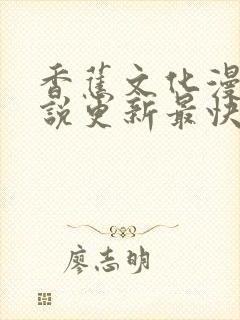 香蕉文化漫
說更新最快
廖志明